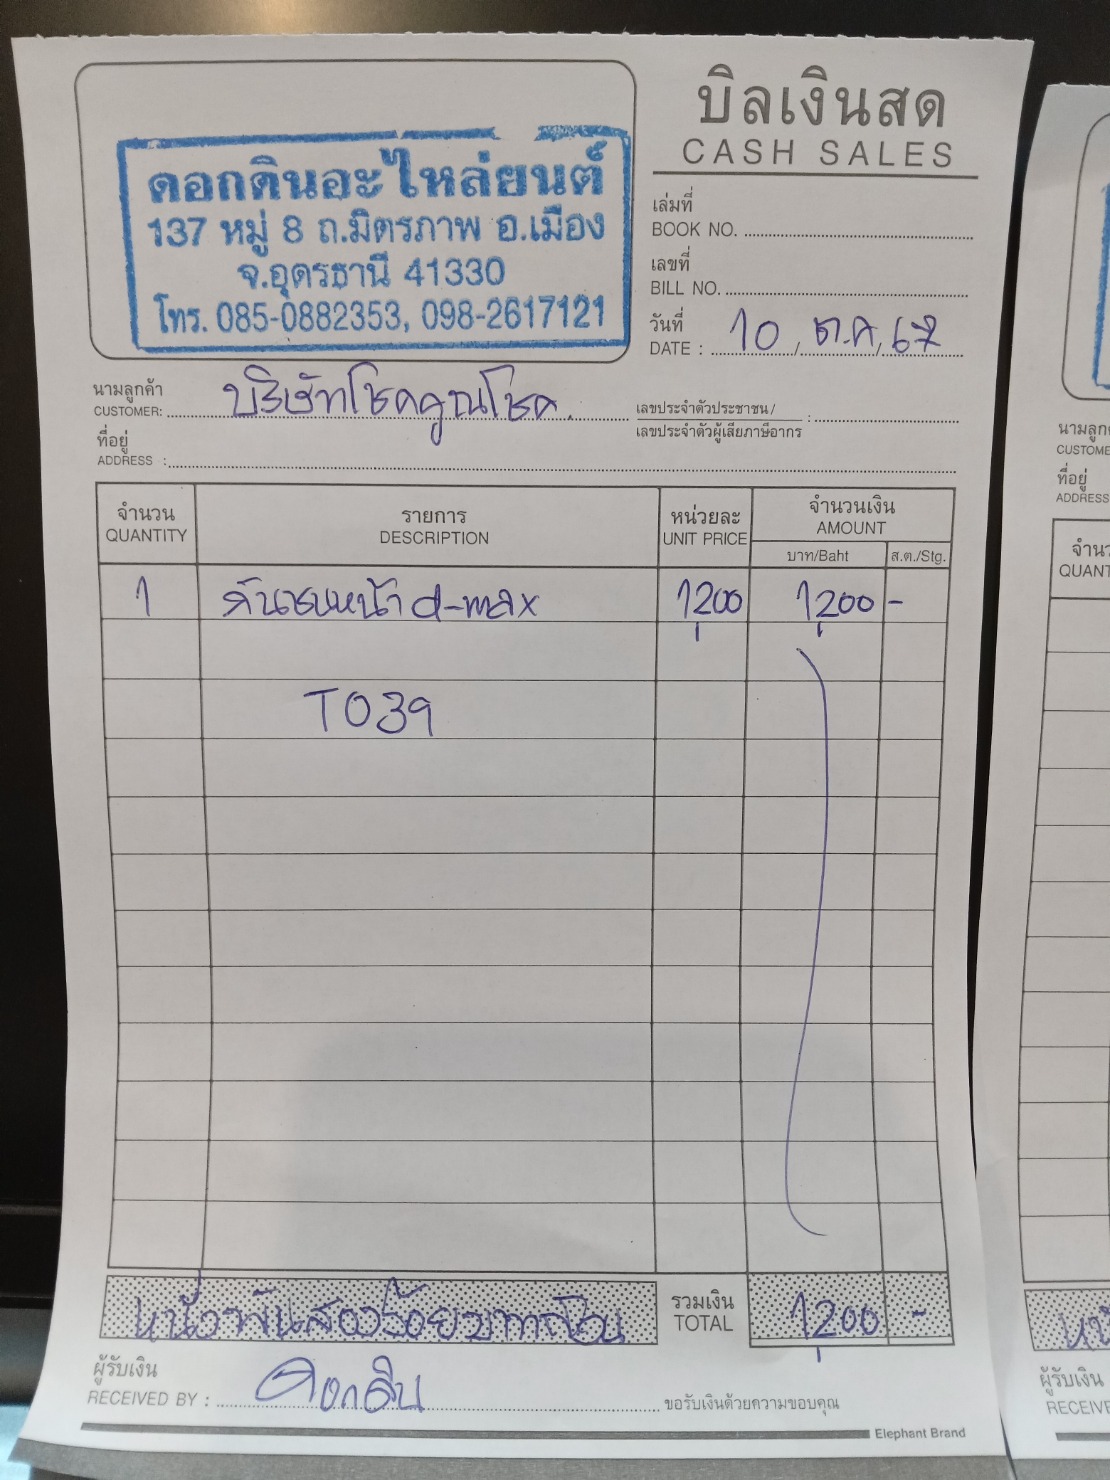 บิลเงินสด
CASH SALES
ดอกดินอะไหล่ยนต์
137 หมู่ 8 ถ.มิตรภาพ อ.เมือง
จ.อุดรธานี 41330
โทร. 085-0882353, 098-2617121
เล่มที่
BOOK NO.
เลขที่
BILL NO.
วันที่
DATE : 10 / ต.ค / 67
นามลูกค้า
CUSTOMER: บริษัทโชคคูณโชค
เลขประจำตัวประชาชน /
เลขประจำตัวผู้เสียภาษีอากร :
ที่อยู่
ADDRESS :
จำนวน รายการ หน่วยละ จำนวนเงิน
QUANTITY DESCRIPTION UNIT PRICE AMOUNT
บาท/Baht ส.ต./Stg.
1 กันชนหน้า d-max 1,200 1,200 -
T039
หนึ่งพันสองร้อยบาทถ้วน
รวมเงิน
TOTAL 1,200 -
ผู้รับเงิน
RECEIVED BY : ดอกดิน
ขอรับเงินด้วยความขอบคุณ
Elephant Brand
นามลูก
CUSTOME
ที่อยู่
ADDRESS
จำน
QUANT
ผู้รับเงิน
RECEIVE